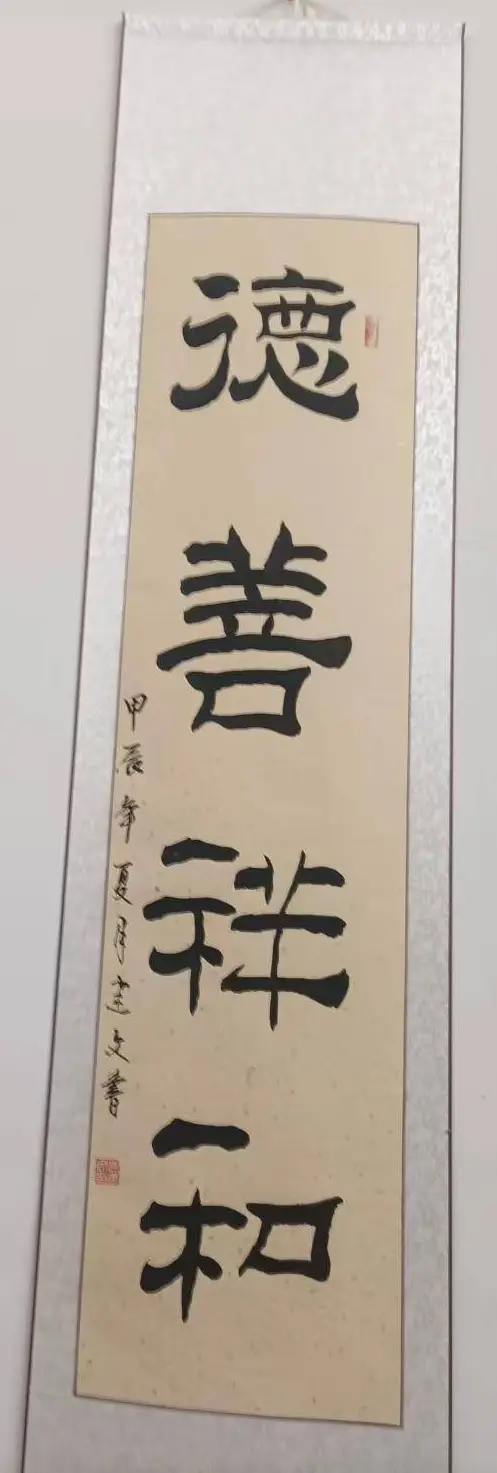 德善祥和
甲辰年夏月建文書